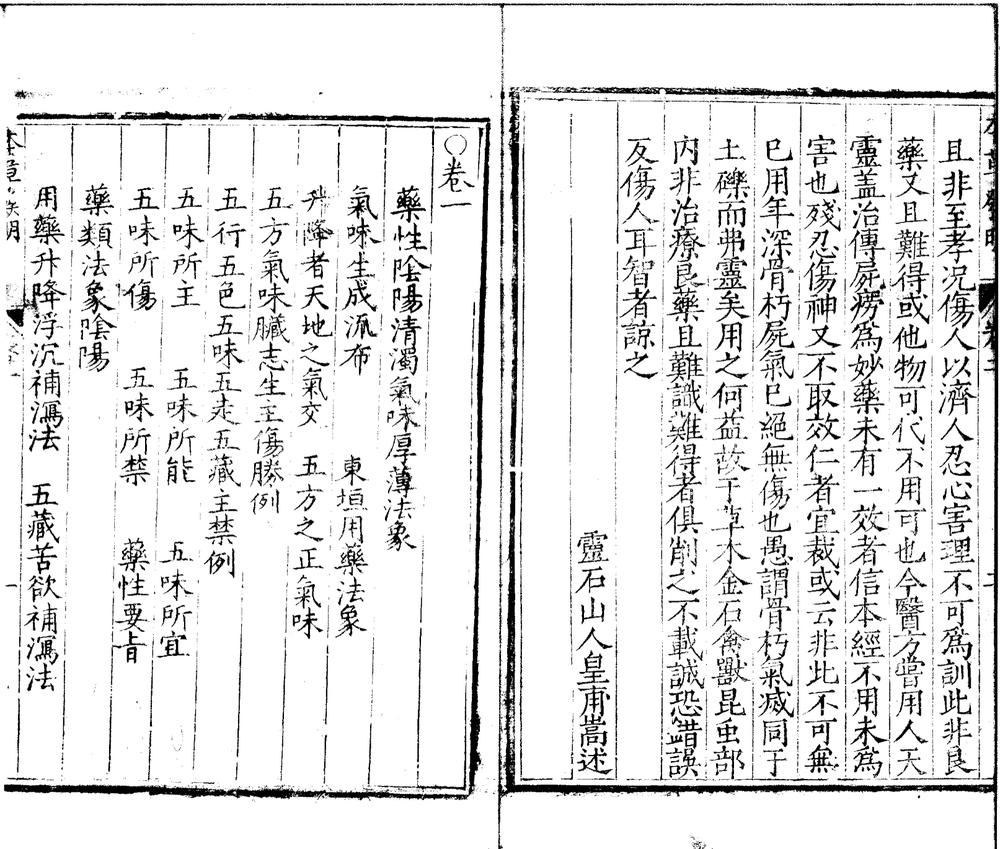 且非至孝况傷人以濟人忍心害理不可爲訓此非良
藥又且難得或他物可代不用可也今醫方嘗用人天
靈蓋治傳屍癆爲妙藥未有一效者信本經不用未爲
害也殘忍傷神又不取效仁者宜裁或云非此不可無
已用年深骨朽屍氣已絕無傷也愚謂骨朽氣滅同于
土礫而弗靈矣用之何益故于草木金石禽獸昆虫部
内非治療良藥且難識難得者俱削之不載誠恐錯誤
反傷人耳智者諒之
靈石山人皇甫嵩述
○卷一
藥性陰陽清濁氣味厚薄法象
氣味生成流布 東垣用藥法象
升降者天地之氣交 五方之正氣味
五方氣味臟志生主傷勝例
五行五色五味五走五藏主禁例
五味所主 五味所能 五味所宜
五味所傷 五味所禁 藥性要旨
藥類法象陰陽
用藥升降浮沉補瀉法 五藏苦欲補瀉法